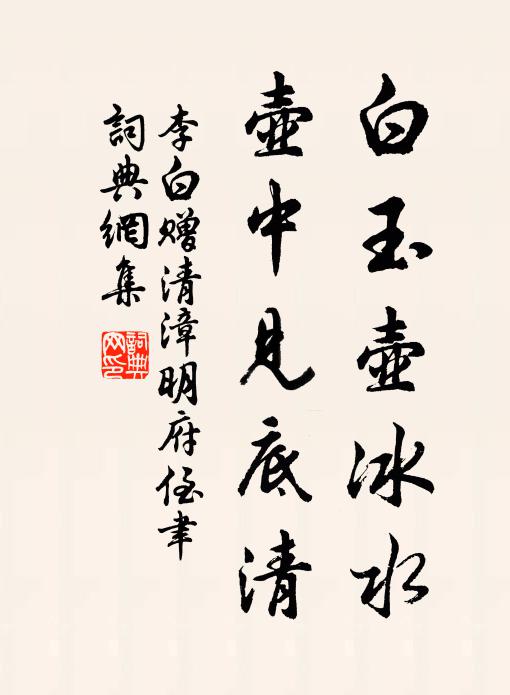 白玉壺冰水
壺中見底清
李白贈清漳明府侄聿
詞典網集
詞典網印